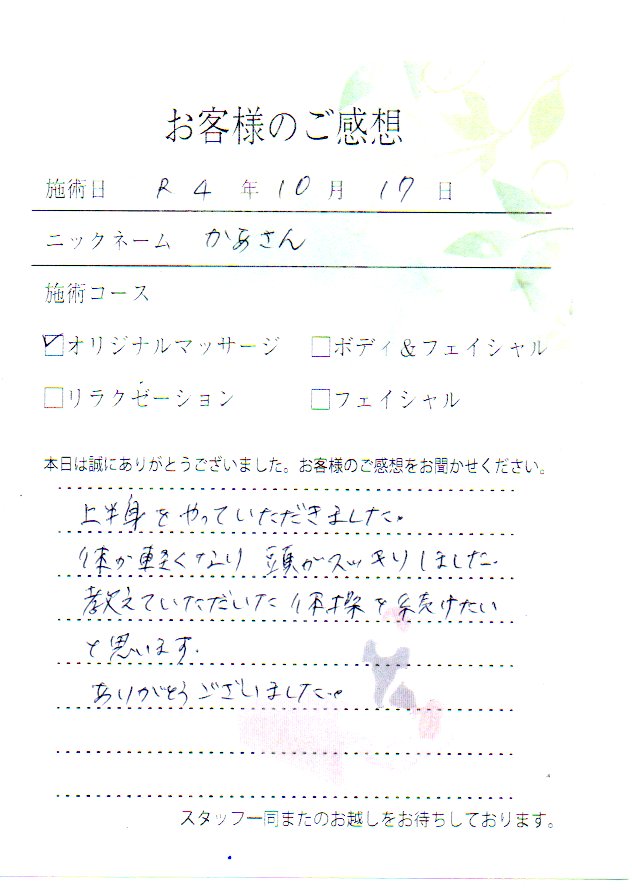 お客様のご感想
施術日 R4年10月17日
ニックネーム かあさん
施術コース
☑オリジナルマッサージ □ボディ&フェイシャル
□リラクゼーション □フェイシャル
本日は誠にありがとうございました。お客様のご感想をお聞かせください。
上半身をやっていただきました。
体が軽くなり 頭がスッキリしました。
教えていただいた体操を続けたい
と思います。
ありがとうございました。
スタッフ一同またのお越しをお待ちしております。